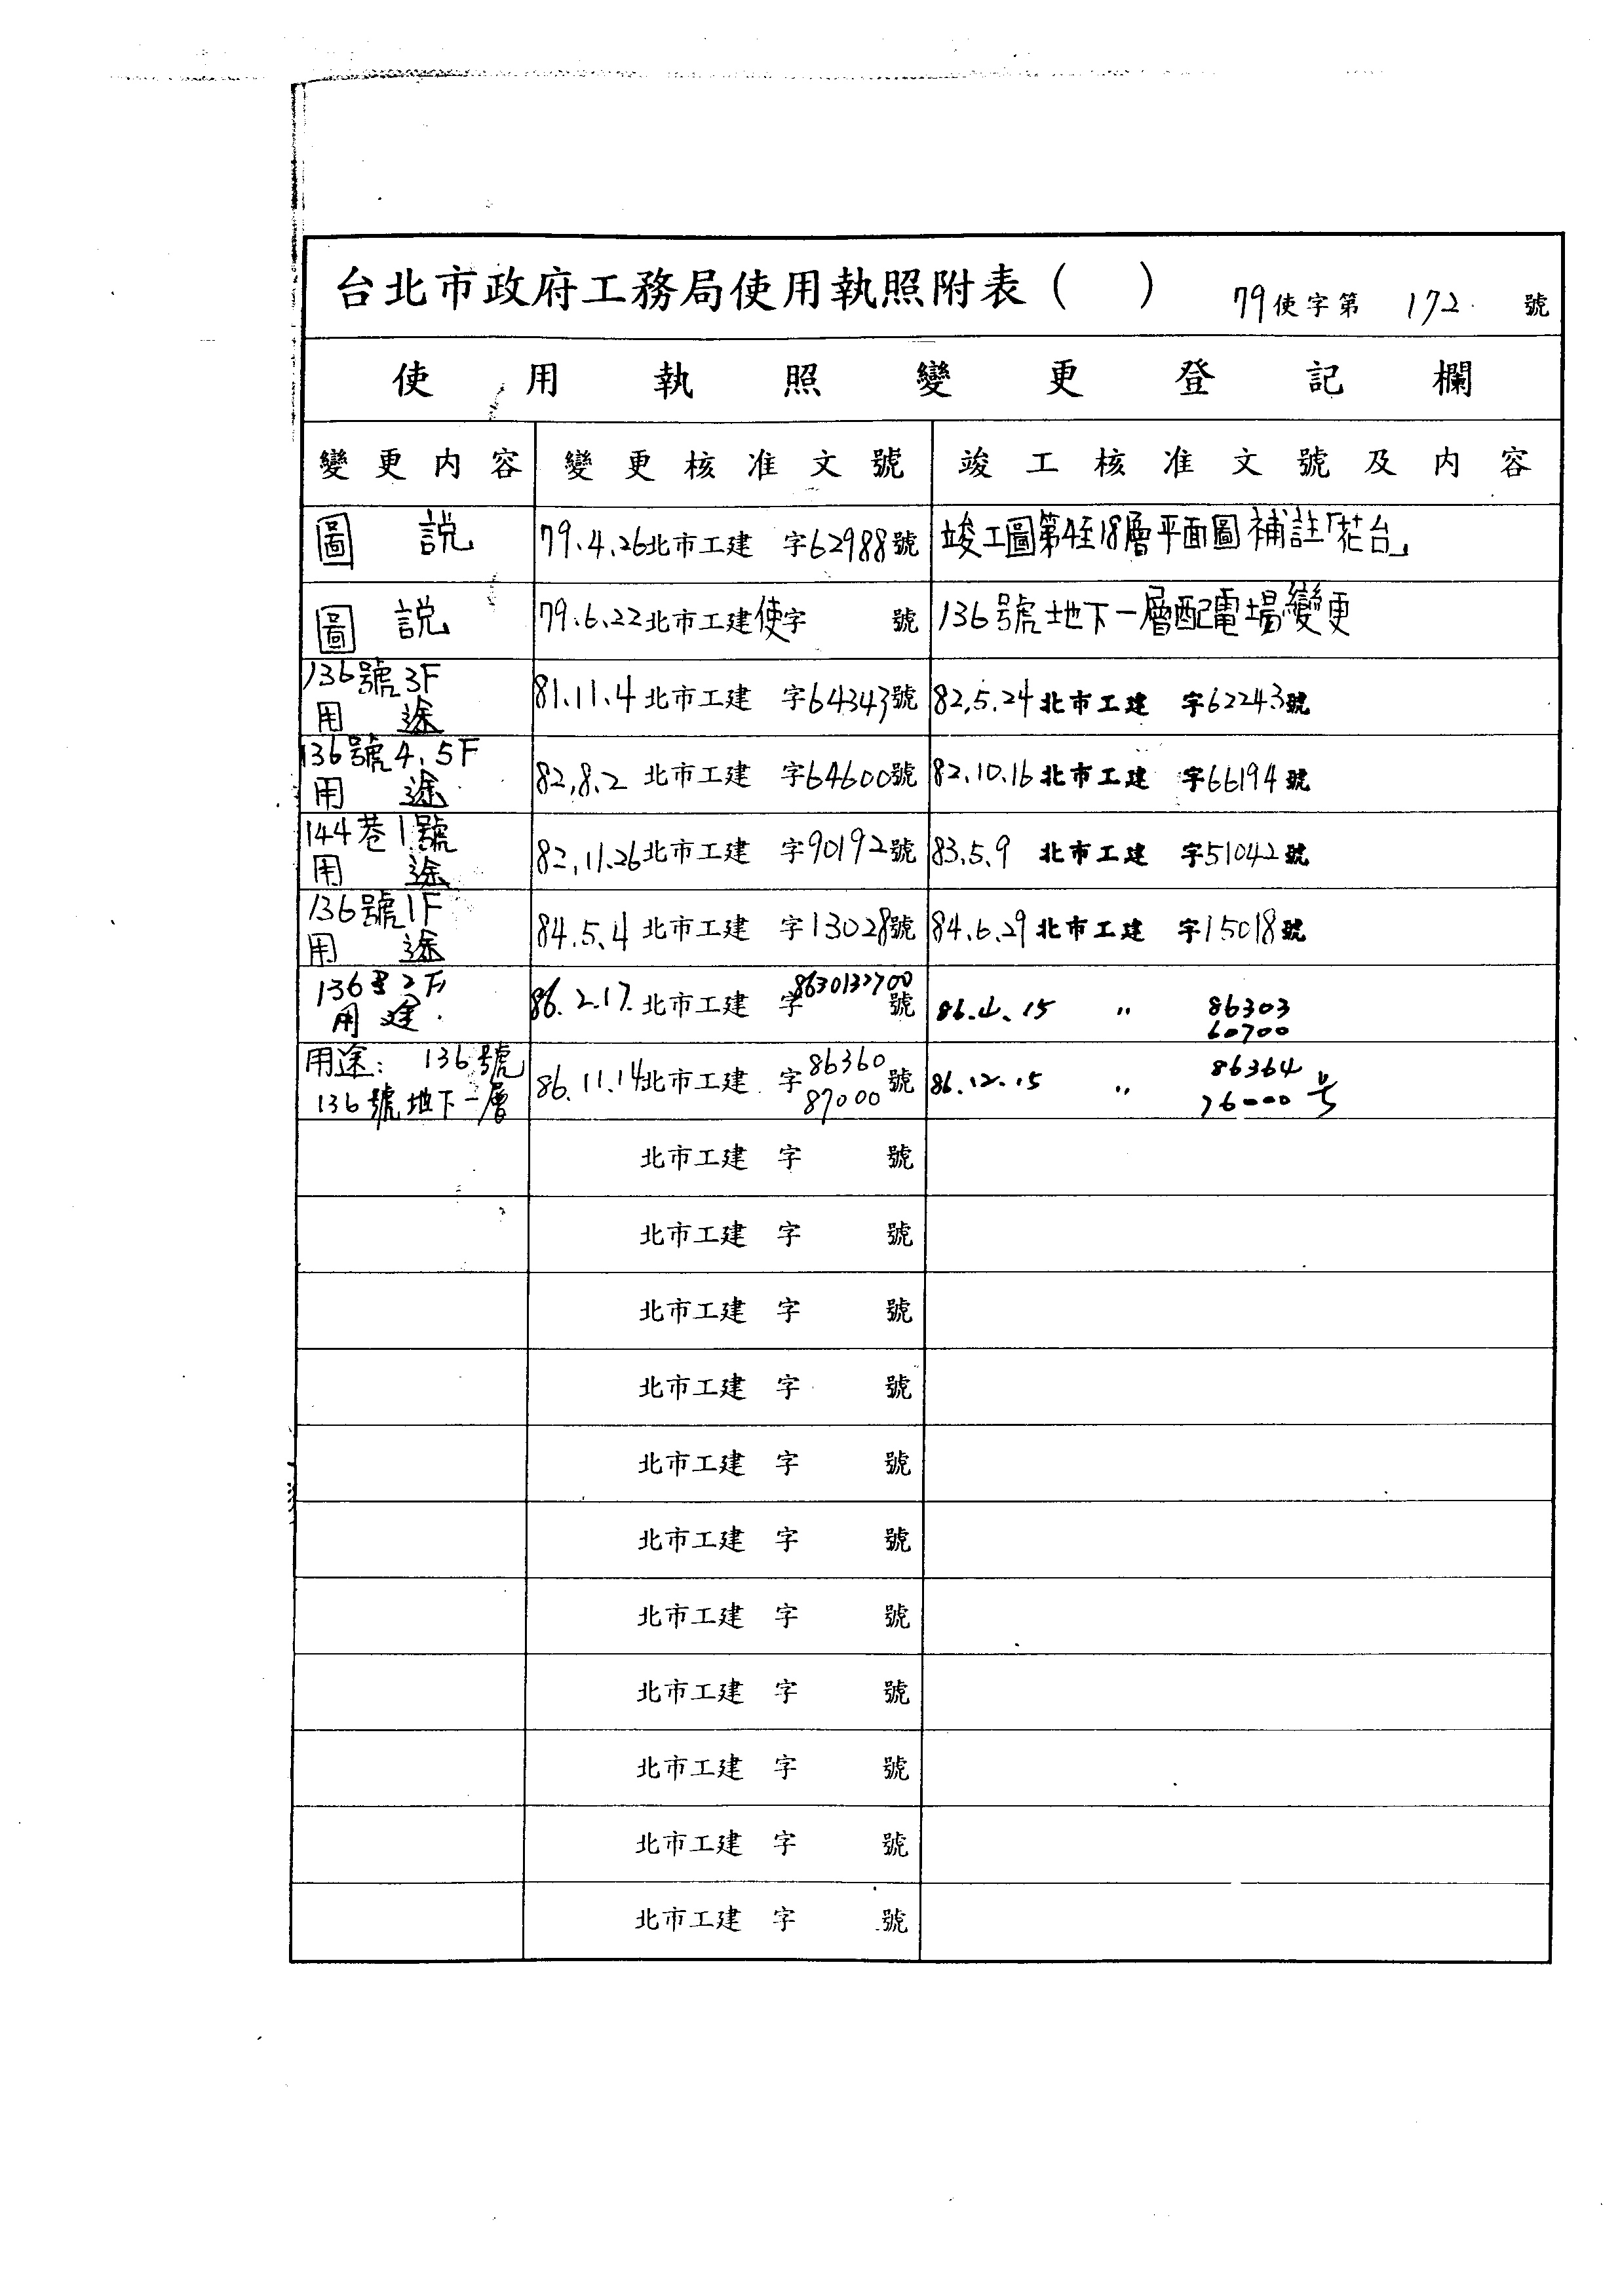 台北市政府工務局使用執照附表（　）　79使字第　172　號
使用執照變更登記欄
變更內容　變更核准文號　竣工核准文號及內容
圖說　79.4.26北市工建　字62988號　竣工圖第4至18層平面圖補註「花台」
圖說　79.6.22北市工建使字　號　136號地下一層配電場變更
136號3F
用途　81.11.4北市工建　字64343號　82.5.24北市工建　字62243號
136號4.5F
用途　82.8.2北市工建　字64600號　82.10.16北市工建　字66194號
144巷1號
用途　82.11.26北市工建　字90192號　83.5.9北市工建　字51042號
136號1F
用途　84.5.4北市工建　字13028號　84.6.29北市工建　字15018號
136号2F
用途　86.2.17.北市工建　字8630132700號　86.4.15　〃　86303
60700
用途：136號　86.11.14北市工建　字86360
87000號　86.12.15　〃　86364
136號地下一層　76000号
北市工建　字　號
北市工建　字　號
北市工建　字　號
北市工建　字　號
北市工建　字　號
北市工建　字　號
北市工建　字　號
北市工建　字　號
北市工建　字　號
北市工建　字　號
北市工建　字　號